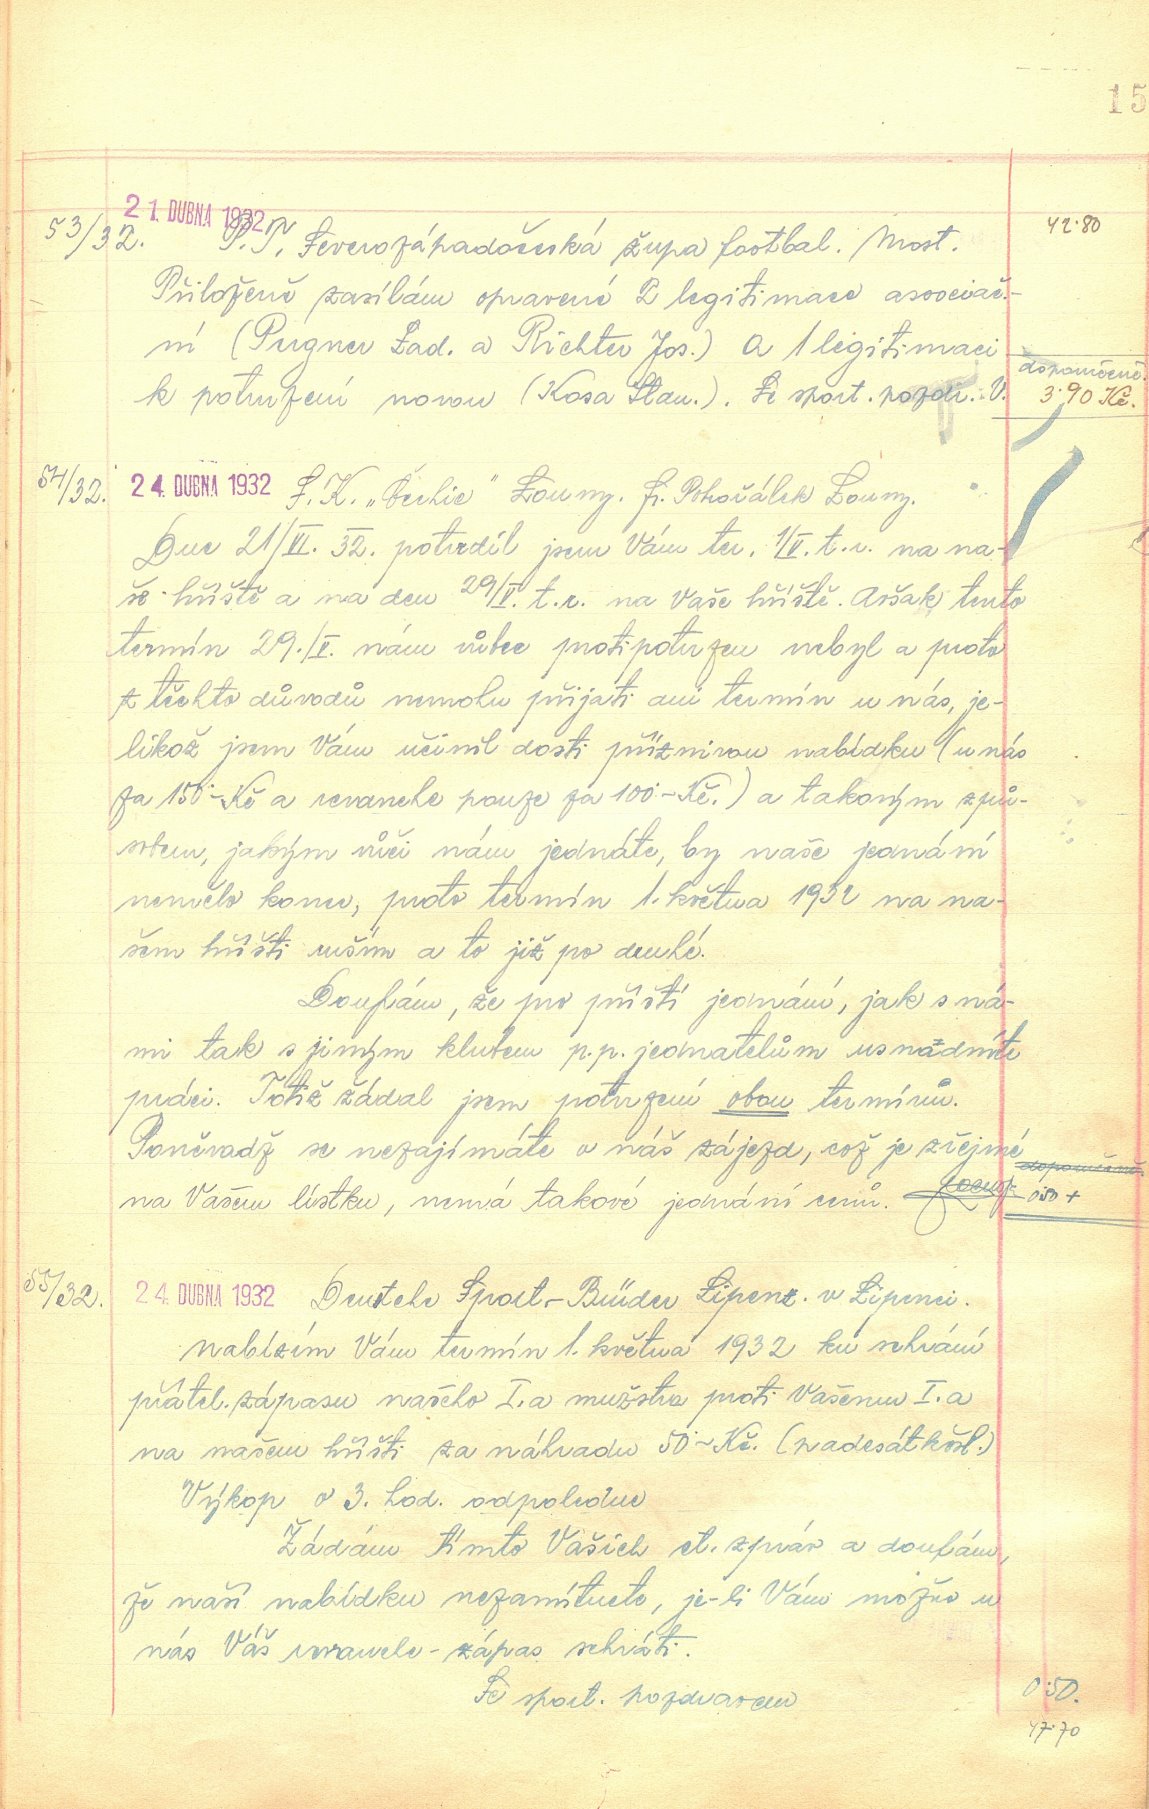 15
21. DUBNA 1932
53/32. P. T. Severozápadočeská župa footbal. Most. 42·80
Přiloženě zasílám opravené 2 legitimace asociač-
ní (Pergner Lad. a Richter Jos.) a 1 legitimaci
k potvrzení novou (Kosa Stan.). Se sport. pozdr. V.
doporučeně.
3·90 Kč.
54/32. 24. DUBNA 1932 S. K. „Čechie" Louny. fr. Louny.
Dne 21/VI. 32. potvrdil jsem Vám ter. 1/V. t. r. na na-
še hříště a na den 29/V. t. r. na Vaše hříště. Avšak tento
termín 29./V. nám vůbec protipotvrzen nebyl a proto
z těchto důvodů nemohu přijati ani termín u nás, je-
likož jsem Vám učinil dosti příznivou nabídku (u nás
za 150·- Kč a revanche pouze za 100·- Kč.) a takovým způ-
sobem, jakým vůči nám jednáte, by naše jednání
nemělo konce, proto termín 1. května 1932 na na-
šem hříšti ruším a to již po druhé.
Doufám, že pro příští jednání, jak s ná-
mi tak s jiným klubem p.p. jednatelům usnadníte
práci. Totiž žádal jsem potvrzení obou termínů.
Poněvadž se nezajímáte o náš zájezd, což je zřejmé
doporučeně.
na Vašem lístku, nemá takové jednání cenu. 0·50 +
55/32. 24. DUBNA 1932 Deutche Sport-Brüder Lipenz. v Lipenci.
Nabízím Vám termín 1. května 1932 ku sehrání
přátel. zápasu našeho I.a mužstva proti Vašemu I.a
na našem hříšti za náhradu 50·- Kč. (padesát kčsl.)
Výkop o 3. hod. odpoledne
Žádám tímto Vašich ct. zpráv a doufám,
že naší nabídku nezamítnete, je-li Vám možno u
nás Váš revanche-zápas sehráti.
Se sport. pozdravem 0·50.
47·70